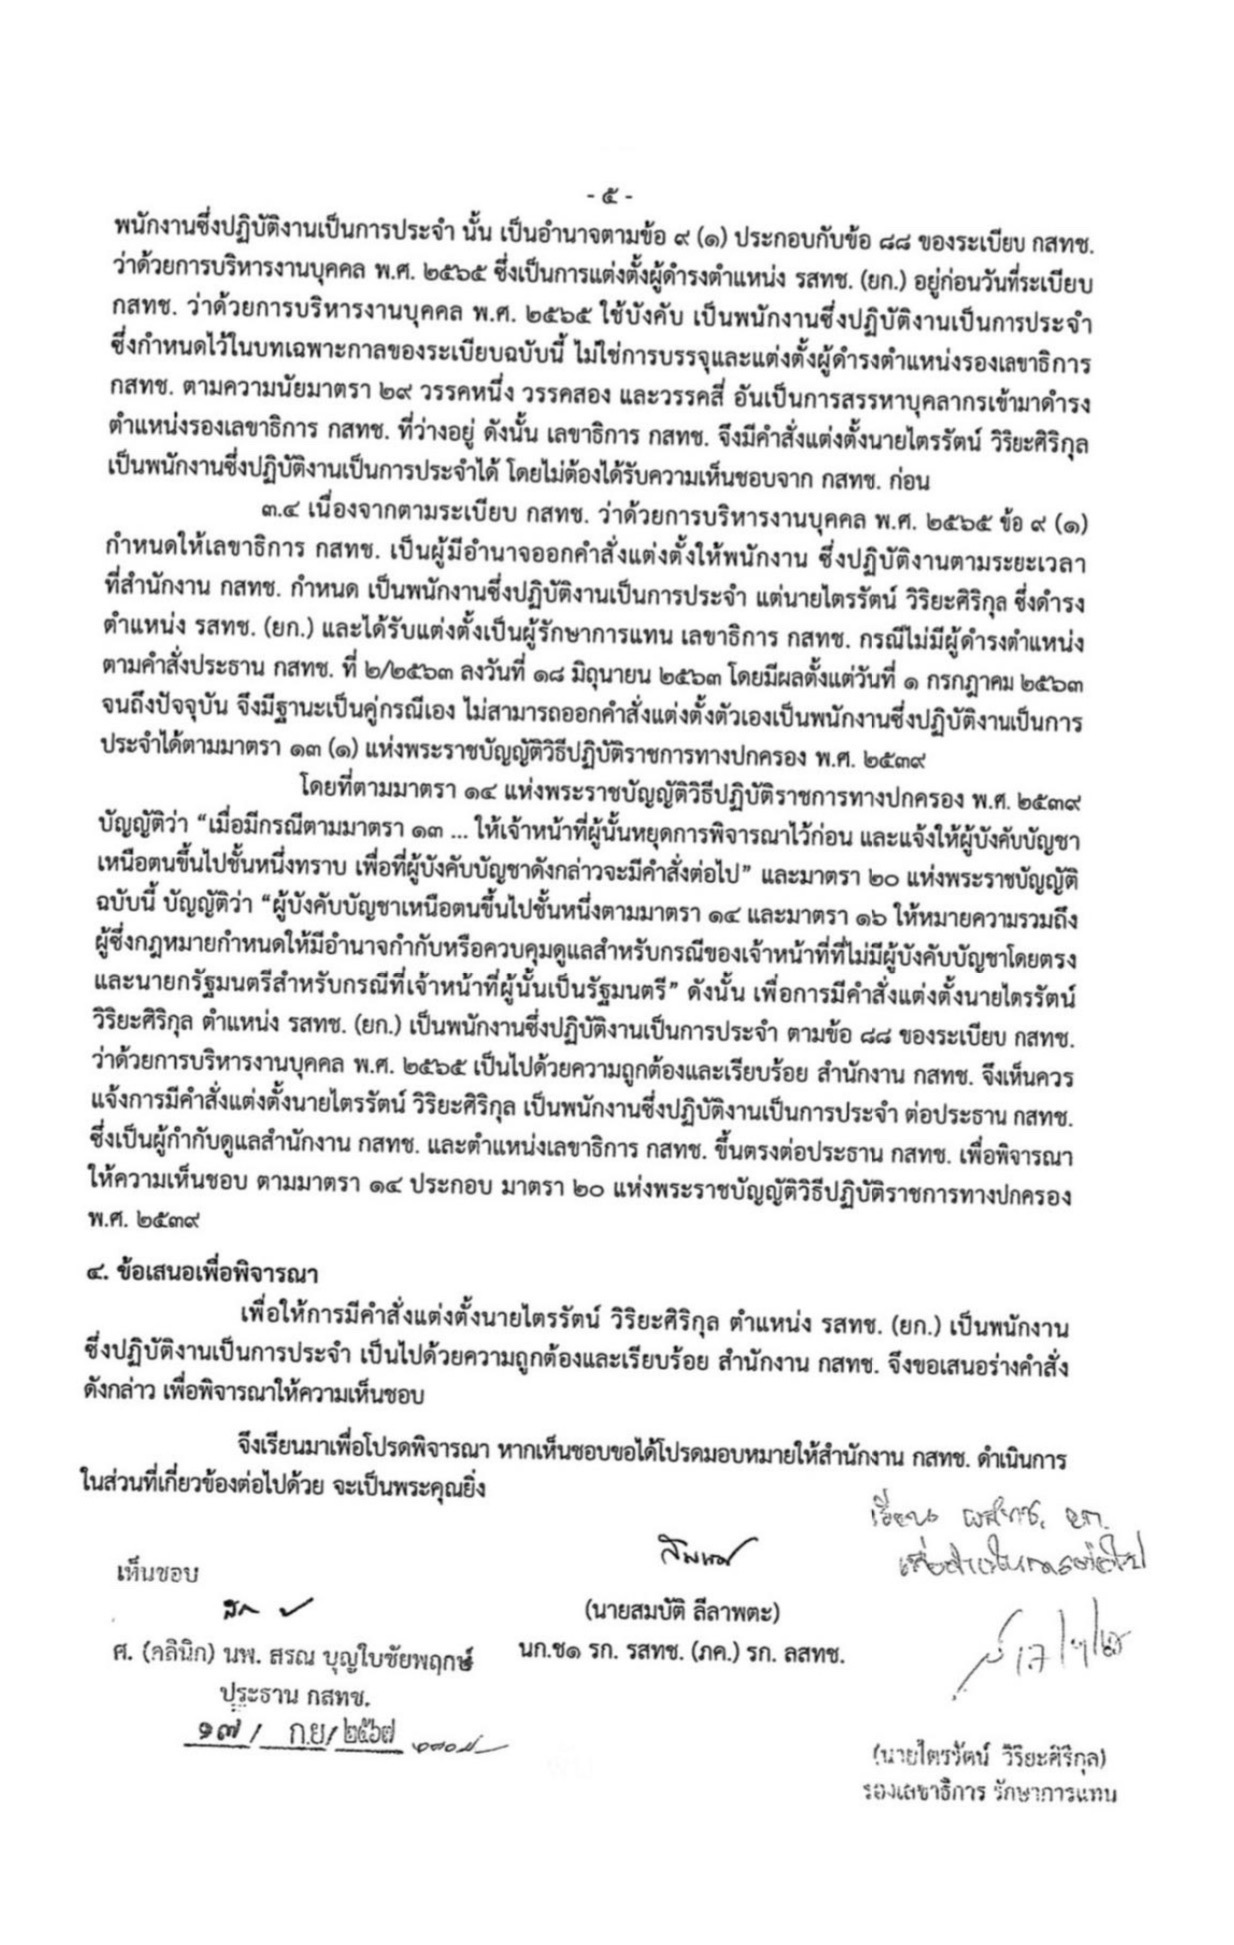 - ๕ -
พนักงานซึ่งปฏิบัติงานเป็นการประจำ นั้น เป็นอำนาจตามข้อ ๙ (๑) ประกอบกับข้อ ๘๘ ของระเบียบ กสทช.
ว่าด้วยการบริหารงานบุคคล พ.ศ. ๒๕๖๕ ซึ่งเป็นการแต่งตั้งผู้ดำรงตำแหน่ง รสทช. (ยก.) อยู่ก่อนวันที่ระเบียบ
กสทช. ว่าด้วยการบริหารงานบุคคล พ.ศ. ๒๕๖๕ ใช้บังคับ เป็นพนักงานซึ่งปฏิบัติงานเป็นการประจำ
ซึ่งกำหนดไว้ในบทเฉพาะกาลของระเบียบฉบับนี้ ไม่ใช่การบรรจุและแต่งตั้งผู้ดำรงตำแหน่งรองเลขาธิการ
กสทช. ตามความนัยมาตรา ๒๙ วรรคหนึ่ง วรรคสอง และวรรคสี่ อันเป็นการสรรหาบุคลากรเข้ามาดำรง
ตำแหน่งรองเลขาธิการ กสทช. ที่ว่างอยู่ ดังนั้น เลขาธิการ กสทช. จึงมีคำสั่งแต่งตั้งนายไตรรัตน์ วิริยะศิริกุล
เป็นพนักงานซึ่งปฏิบัติงานเป็นการประจำได้ โดยไม่ต้องได้รับความเห็นชอบจาก กสทช. ก่อน
๓.๔ เนื่องจากตามระเบียบ กสทช. ว่าด้วยการบริหารงานบุคคล พ.ศ. ๒๕๖๕ ข้อ ๙ (๑)
กำหนดให้เลขาธิการ กสทช. เป็นผู้มีอำนาจออกคำสั่งแต่งตั้งให้พนักงาน ซึ่งปฏิบัติงานตามระยะเวลา
ที่สำนักงาน กสทช. กำหนด เป็นพนักงานซึ่งปฏิบัติงานเป็นการประจำ แต่นายไตรรัตน์ วิริยะศิริกุล ซึ่งดำรง
ตำแหน่ง รสทช. (ยก.) และได้รับแต่งตั้งเป็นผู้รักษาการแทน เลขาธิการ กสทช. กรณีไม่มีผู้ดำรงตำแหน่ง
ตามคำสั่งประธาน กสทช. ที่ ๒/๒๕๖๓ ลงวันที่ ๑๘ มิถุนายน ๒๕๖๓ โดยมีผลตั้งแต่วันที่ ๑ กรกฎาคม ๒๕๖๓
จนถึงปัจจุบัน จึงมีฐานะเป็นคู่กรณีเอง ไม่สามารถออกคำสั่งแต่งตั้งตัวเองเป็นพนักงานซึ่งปฏิบัติงานเป็นการ
ประจำได้ตามมาตรา ๑๓ (๑) แห่งพระราชบัญญัติวิธีปฏิบัติราชการทางปกครอง พ.ศ. ๒๕๓๙
โดยที่ตามมาตรา ๑๔ แห่งพระราชบัญญัติวิธีปฏิบัติราชการทางปกครอง พ.ศ. ๒๕๓๙
บัญญัติว่า “เมื่อมีกรณีตามมาตรา ๑๓ ... ให้เจ้าหน้าที่ผู้นั้นหยุดการพิจารณาไว้ก่อน และแจ้งให้ผู้บังคับบัญชา
เหนือตนขึ้นไปชั้นหนึ่งทราบ เพื่อที่ผู้บังคับบัญชาดังกล่าวจะมีคำสั่งต่อไป” และมาตรา ๒๐ แห่งพระราชบัญญัติ
ฉบับนี้ บัญญัติว่า “ผู้บังคับบัญชาเหนือตนขึ้นไปชั้นหนึ่งตามมาตรา ๑๔ และมาตรา ๑๖ ให้หมายความรวมถึง
ผู้ซึ่งกฎหมายกำหนดให้มีอำนาจกำกับหรือควบคุมดูแลสำหรับกรณีของเจ้าหน้าที่ที่ไม่มีผู้บังคับบัญชาโดยตรง
และนายกรัฐมนตรีสำหรับกรณีที่เจ้าหน้าที่ผู้นั้นเป็นรัฐมนตรี” ดังนั้น เพื่อการมีคำสั่งแต่งตั้งนายไตรรัตน์
วิริยะศิริกุล ตำแหน่ง รสทช. (ยก.) เป็นพนักงานซึ่งปฏิบัติงานเป็นการประจำ ตามข้อ ๘๘ ของระเบียบ กสทช.
ว่าด้วยการบริหารงานบุคคล พ.ศ. ๒๕๖๕ เป็นไปด้วยความถูกต้องและเรียบร้อย สำนักงาน กสทช. จึงเห็นควร
แจ้งการมีคำสั่งแต่งตั้งนายไตรรัตน์ วิริยะศิริกุล เป็นพนักงานซึ่งปฏิบัติงานเป็นการประจำ ต่อประธาน กสทช.
ซึ่งเป็นผู้กำกับดูแลสำนักงาน กสทช. และตำแหน่งเลขาธิการ กสทช. ขึ้นตรงต่อประธาน กสทช. เพื่อพิจารณา
ให้ความเห็นชอบ ตามมาตรา ๑๔ ประกอบ มาตรา ๒๐ แห่งพระราชบัญญัติวิธีปฏิบัติราชการทางปกครอง
พ.ศ. ๒๕๓๙
๔. ข้อเสนอเพื่อพิจารณา
เพื่อให้การมีคำสั่งแต่งตั้งนายไตรรัตน์ วิริยะศิริกุล ตำแหน่ง รสทช. (ยก.) เป็นพนักงาน
ซึ่งปฏิบัติงานเป็นการประจำ เป็นไปด้วยความถูกต้องและเรียบร้อย สำนักงาน กสทช. จึงขอเสนอร่างคำสั่ง
ดังกล่าว เพื่อพิจารณาให้ความเห็นชอบ
จึงเรียนมาเพื่อโปรดพิจารณา หากเห็นชอบขอได้โปรดมอบหมายให้สำนักงาน กสทช. ดำเนินการ
ในส่วนที่เกี่ยวข้องต่อไปด้วย จะเป็นพระคุณยิ่ง
เรียน
เห็นชอบ
(นายสมบัติ ลีลาพตะ)
นก.ช๑ รก. รสทช. (ภค.) รก. ลสทช.
ศ. (คลินิก) นพ. สรณ บุญใบชัยพฤกษ์
ประธาน กสทช.
๑๗ / ก.ย / ๒๕๖๗
(นายไตรรัตน์ วิริยะศิริกุล)
รองเลขาธิการ รักษาการแทน